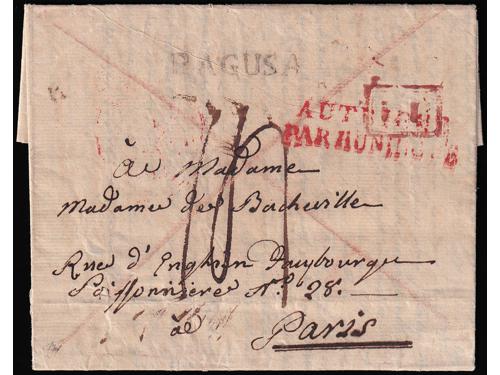 RAGUSA
AUTRICHE
PAR HUNINGUE
à Madame
Madame de Bacheville
Rue d'Enghien Faubourgue
Poissonniere N.º 28.
à
Paris